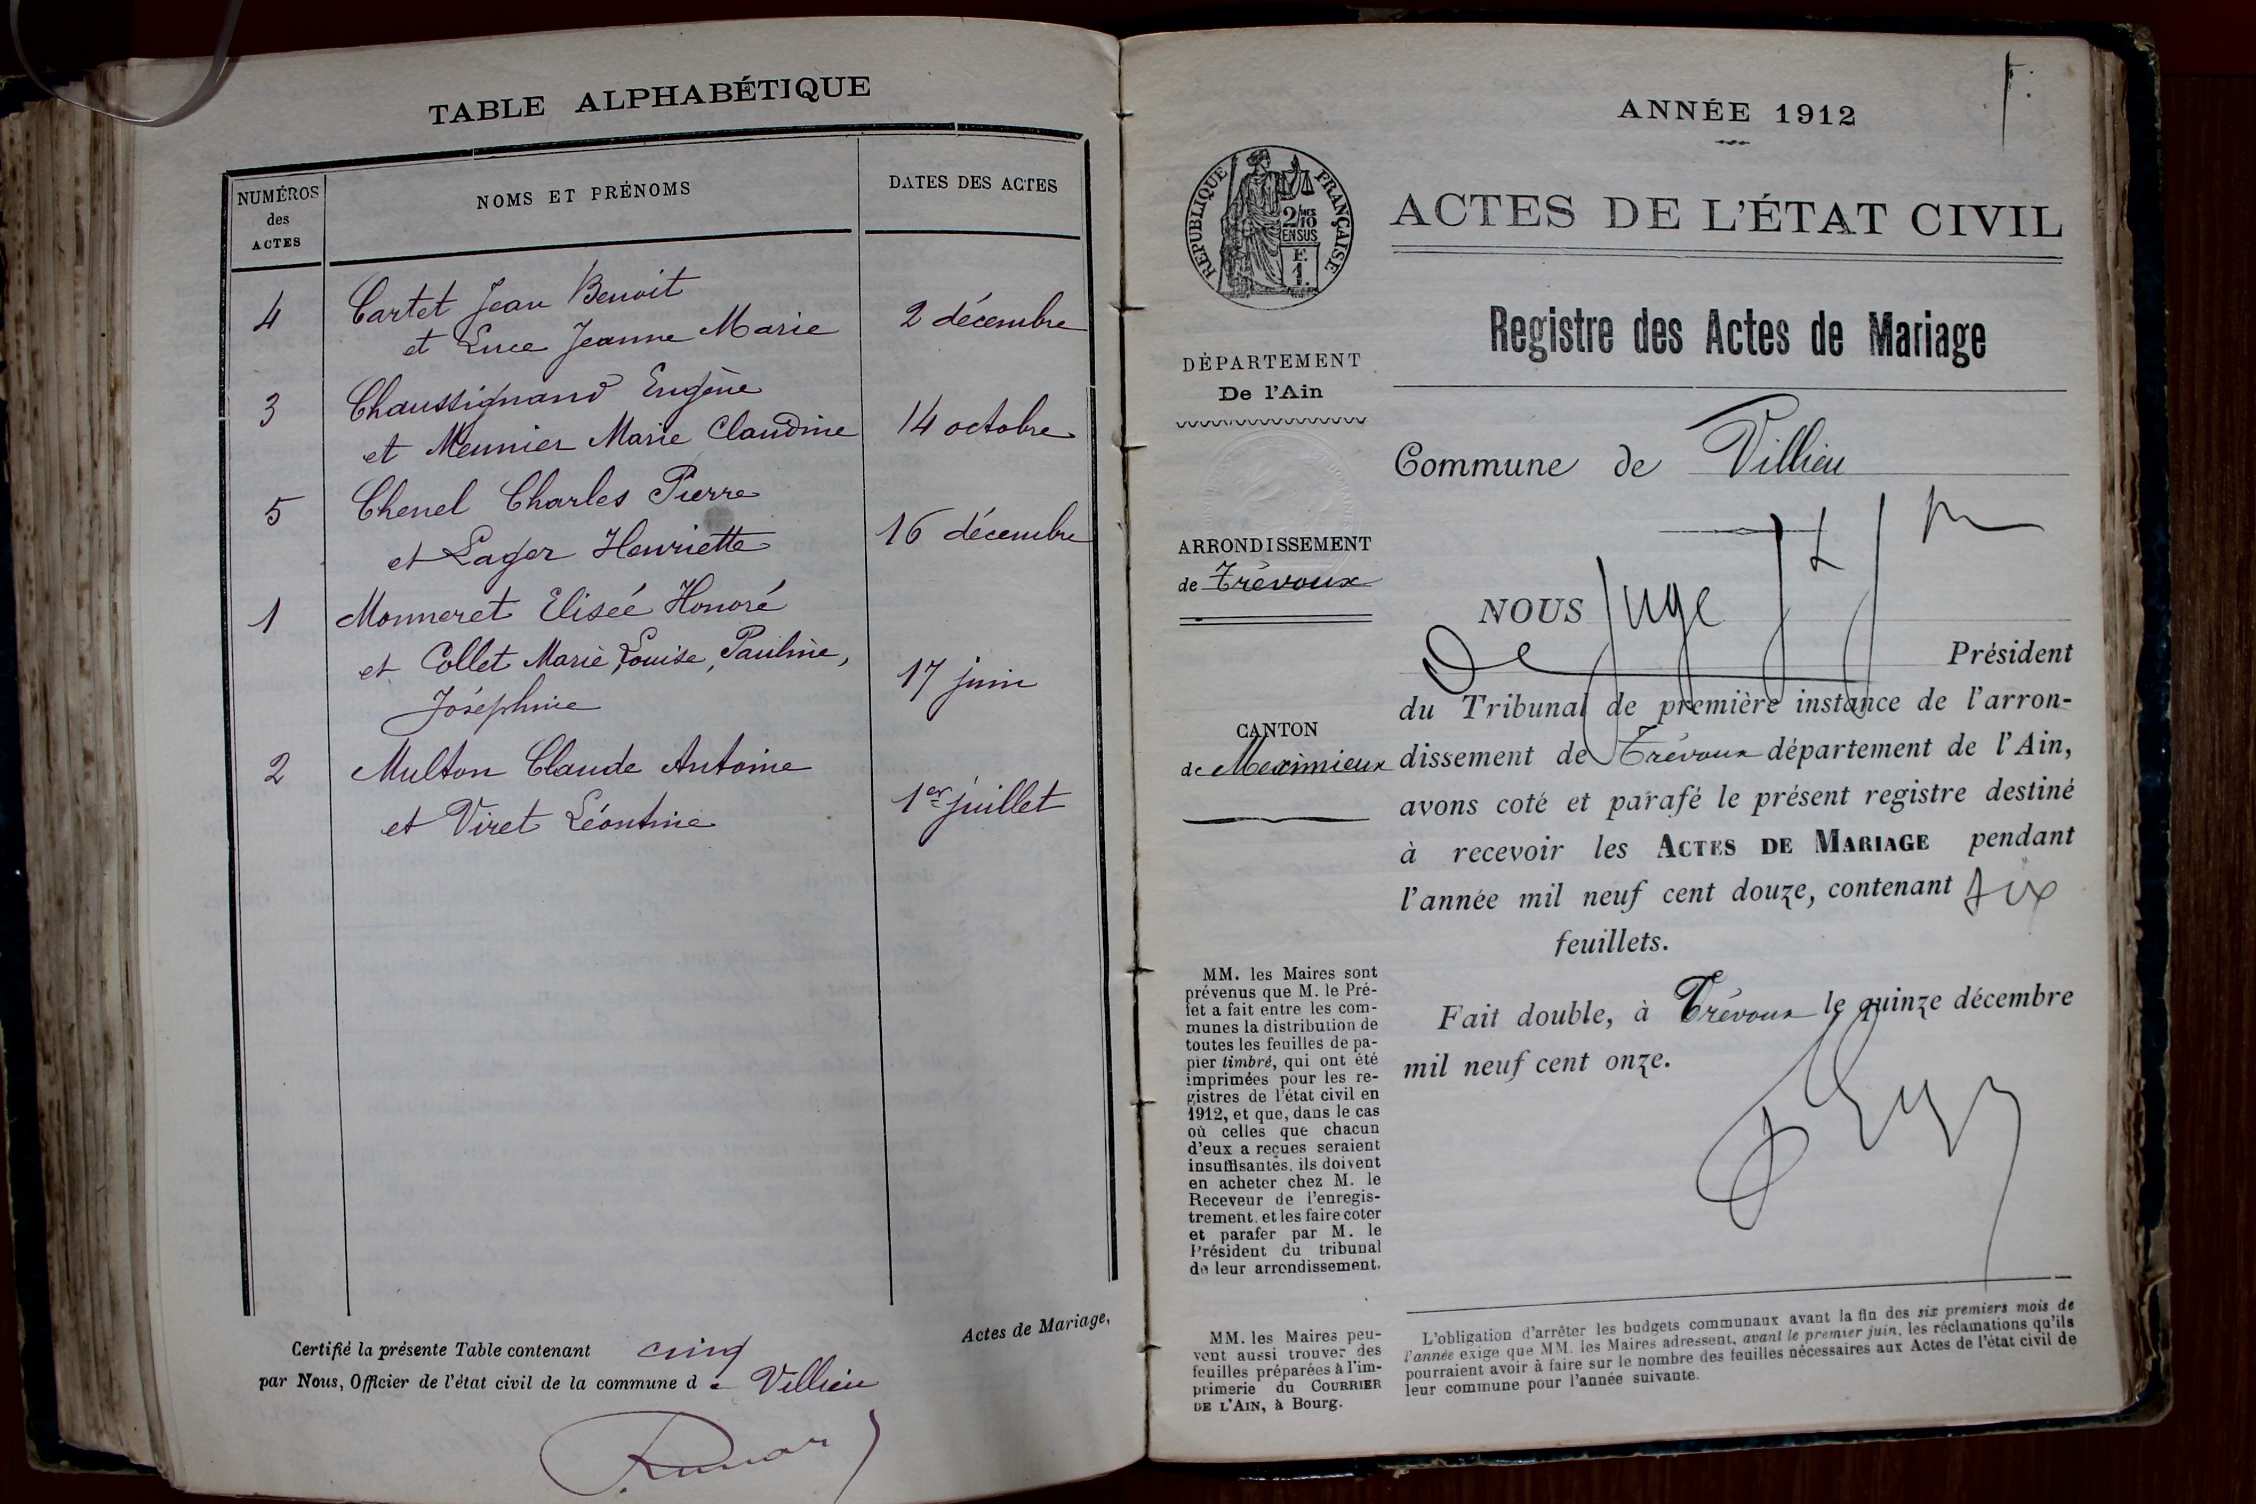 TABLE ALPHABÉTIQUE
NUMÉROS des ACTES
NOMS ET PRÉNOMS
DATES DES ACTES
4 Cartet Jean Benoit
et Luce Jeanne Marie 2 décembre
3 Chaussignand Eugène
et Meunier Marie Claudine 14 octobre
5 Chenel Charles Pierre
et Lager Henriette 16 décembre
1 Monneret Eliseé Honoré
et Collet Marie, Louise, Pauline,
Joséphine 17 juin
2 Multon Claude Antoine
et Viret Léontine 1er juillet
Certifié la présente Table contenant cinq Actes de Mariage,
par Nous, Officier de l'état civil de la commune de Villieu
ANNÉE 1912
ACTES DE L'ÉTAT CIVIL
RÉPUBLIQUE FRANÇAISE
2/10 EN SUS
F. 1.
Registre des Actes de Mariage
DÉPARTEMENT
De l'Ain
Commune de Villieu
ARRONDISSEMENT
de Trévoux
CANTON
de Meximieux
NOUS Juge
De Président
du Tribunal de première instance de l'arron-
dissement de Trévoux département de l'Ain,
avons coté et parafé le présent registre destiné
à recevoir les ACTES DE MARIAGE pendant
l'année mil neuf cent douze, contenant six
feuillets.
Fait double, à Trévoux le quinze décembre
mil neuf cent onze.
MM. les Maires sont
prévenus que M. le Pré-
fet a fait entre les com-
munes la distribution de
toutes les feuilles de pa-
pier timbré, qui ont été
imprimées pour les re-
gistres de l'état civil en
1912, et que, dans le cas
où celles que chacun
d'eux a reçues seraient
insuffisantes, ils doivent
en acheter chez M. le
Receveur de l'enregis-
trement, et les faire coter
et parafer par M. le
Président du tribunal
de leur arrondissement.
MM. les Maires peu-
vent aussi trouver des
feuilles préparées à l'im-
primerie du COURRIER
DE L'AIN, à Bourg.
L'obligation d'arrêter les budgets communaux avant la fin des six premiers mois de
l'année exige que MM. les Maires adressent, avant le premier juin, les réclamations qu'ils
pourraient avoir à faire sur le nombre des feuilles nécessaires aux Actes de l'état civil de
leur commune pour l'année suivante.